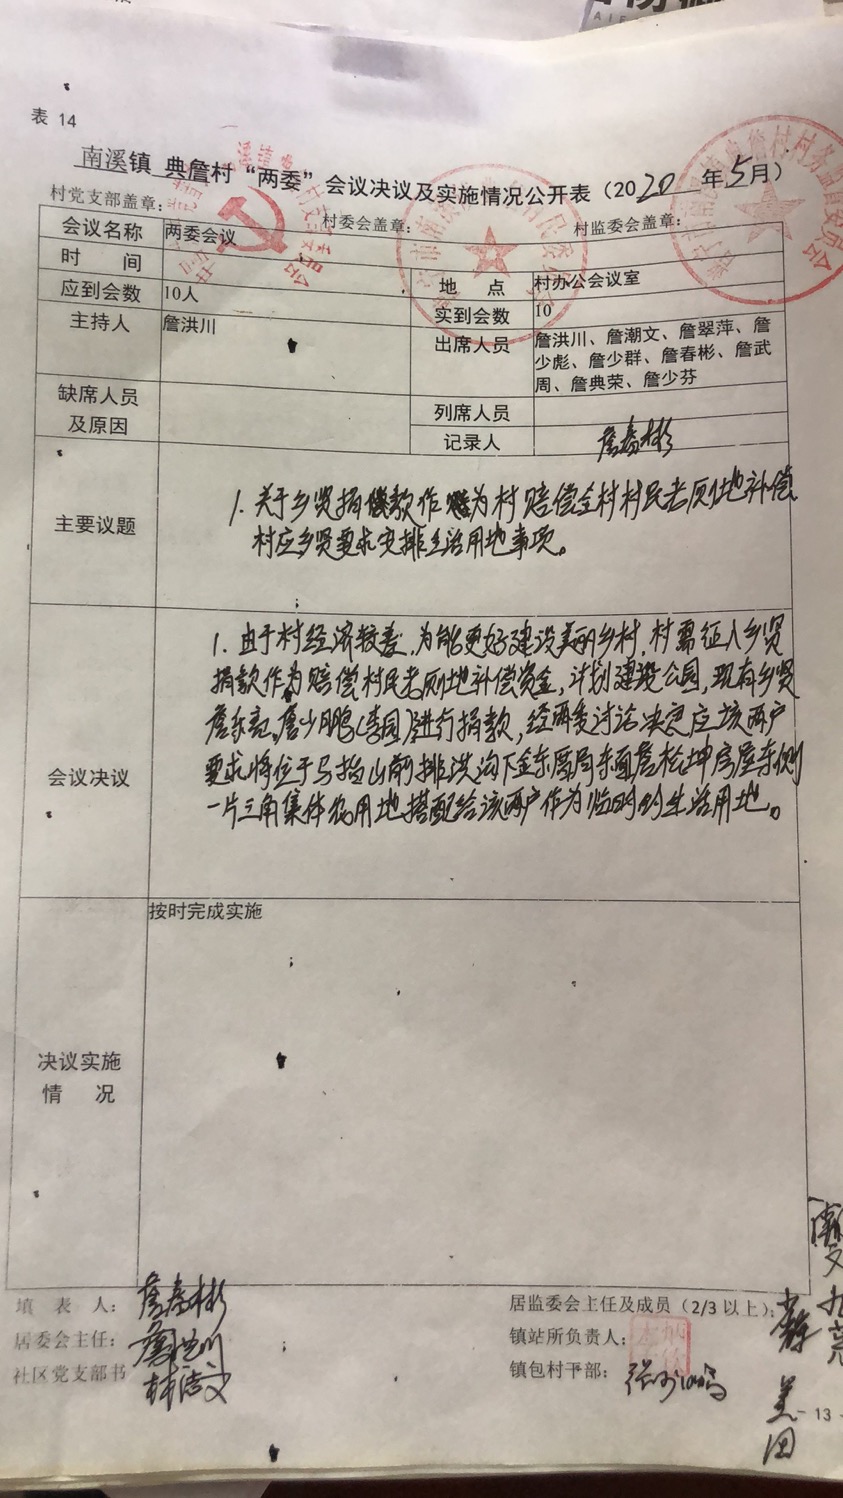 表 14
南溪镇 典詹村“两委”会议决议及实施情况公开表（2020年5月）
村党支部盖章： 村委会盖章： 村监委会盖章：
会议名称 两委会议
时 间 地 点 村办公会议室
应到会数 10人 实到会数 10
主持人 詹洪川 出席人员 詹洪川、詹潮文、詹翠萍、詹
少彪、詹少群、詹春彬、詹武
周、詹典荣、詹少芬
缺席人员
及原因
列席人员
记录人 詹春彬
主要议题
1. 关于乡贤捐款作为村赔偿全村村民老厕地补偿
村应乡贤要求安排生活用地事项。
会议决议
1. 由于村经济较差，为能更好建设美丽乡村，村需征入乡贤
捐款作为赔偿村民老厕地补偿资金，计划建设公园，现有乡贤
詹少鹏(李园)进行捐款，经两委讨论决定应该两户
要求将位于马指山前排洪沟下金东厝局东面詹松坤房屋东侧
一片三角集体 用地搭配给该两户作为临时的生活用地。
决议实施
情 况
按时完成实施
填 表 人：詹春彬
居委会主任：詹洪川
社区党支部书
居监委会主任及成员（2/3 以上）：
镇站所负责人：
镇包村干部：
- 13 -